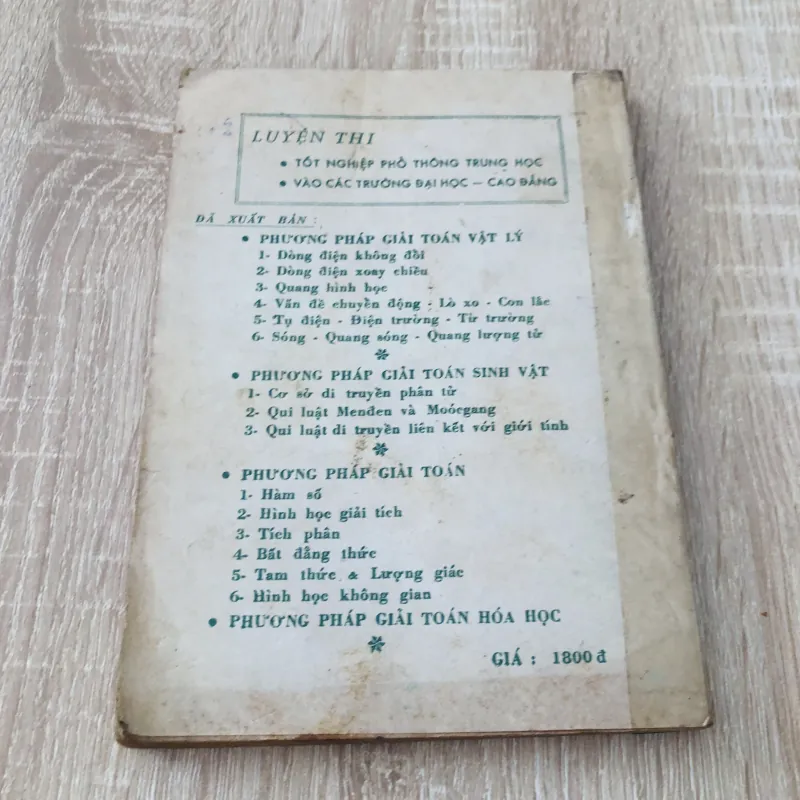 LUYỆN THI
• TỐT NGHIỆP PHỔ THÔNG TRUNG HỌC
• VÀO CÁC TRƯỜNG ĐẠI HỌC – CAO ĐẲNG
ĐÃ XUẤT BẢN :
• PHƯƠNG PHÁP GIẢI TOÁN VẬT LÝ
1- Dòng điện không đổi
2- Dòng điện xoay chiều
3- Quang hình học
4- Vấn đề chuyển động - Lò xo - Con lắc
5- Tụ điện - Điện trường - Từ trường
6- Sóng - Quang sóng - Quang lượng tử
• PHƯƠNG PHÁP GIẢI TOÁN SINH VẬT
1- Cơ sở di truyền phân tử
2- Qui luật Menđen và Moócgang
3- Qui luật di truyền liên kết với giới tính
• PHƯƠNG PHÁP GIẢI TOÁN
1- Hàm số
2- Hình học giải tích
3- Tích phân
4- Bất đẳng thức
5- Tam thức & Lượng giác
6- Hình học không gian
• PHƯƠNG PHÁP GIẢI TOÁN HÓA HỌC
GIÁ : 1800 đ